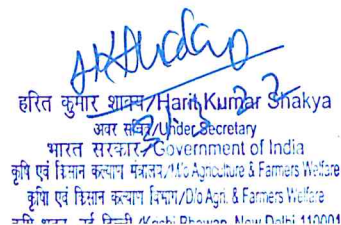 हरित कुमार शाक्य/Harit Kumar Shakya
अवर सचिव/Under Secretary
भारत सरकार/Government of India
कृषि एवं किसान कल्याण मंत्रालय/M/o Agriculture & Farmers Welfare
कृषि एवं किसान कल्याण विभाग/D/o Agri. & Farmers Welfare
कृषि भवन, नई दिल्ली/Krishi Bhawan, New Delhi 110001